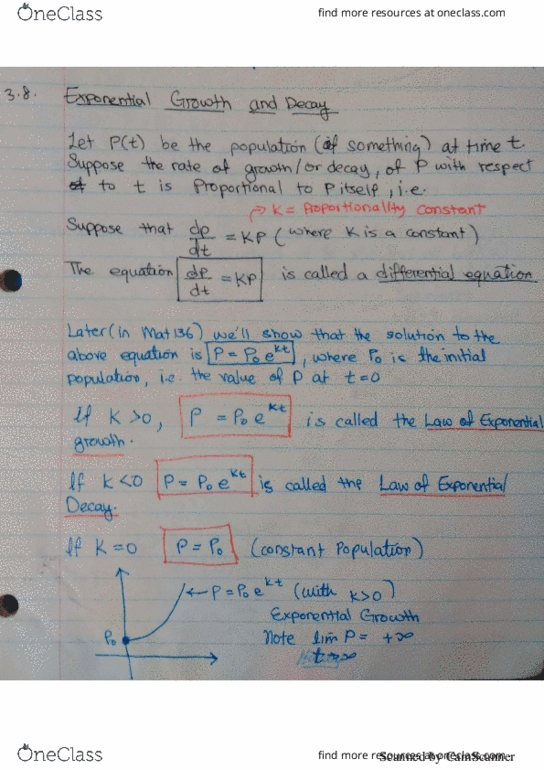 OneClass
find more resources at oneclass.com
3.8. Exponential Growth and Decay
Let P(t) be the population (of something) at time t.
Suppose the rate of growth/or decay, of P with respect
to t is Proportional to P itself, i.e.
→ K = Proportionality constant
Suppose that dp/dt = KP (where K is a constant)
The equation dp/dt = KP is called a differential equation
Later (in Mat 136) we'll show that the solution to the
above equation is P = P₀e^kt, where P₀ is the initial
population, i.e. the value of P at t=0
If K >0, P = P₀e^kt is called the Law of Exponential
growth.
If K<0 P = P₀e^kt is called the Law of Exponential
Decay.
If K=0 P = P₀ (constant Population)
← P = P₀e^kt (with k>0)
Exponential Growth
P₀ Note lim P = +∞
t→∞
OneClass
find more resources at oneclass.com
Scanned by CamScanner